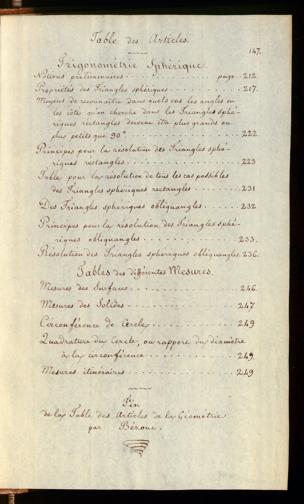 Table des Articles.
147.
Trigonométrie Sphérique.
Notions préliminaires page 212.
Propriétés des Triangles sphériques 217.
Moyens de reconnaitre dans quels cas les angles ou
les côtés qu'on cherche dans les Triangles Sphé-
riques rectangles doivent être plus grands ou
plus petits que 90° 222.
Principes pour la résolution des Triangles sphé-
riques rectangles 223
Table pour la résolution de tous les cas possibles
des Triangles sphériques rectangles 231
Des Triangles sphériques obliquangles 232
Principes pour la résolution des Triangles sphé-
riques obliquangles 233.
Résolution des Triangles sphériques obliquangles. 236.
Tables des différentes Mesures.
Mesures des Surfaces 246.
Mesures des Solides 247
Circonférence de Cercle 249
Quadrature du Cercle, ou rapport du diamètre
à la circonférence 249.
Mesures itinéraires 249
Fin
de la Table des Articles de la Géométrie
par Bézout.